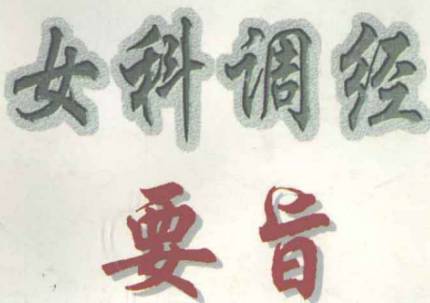 女科调经
要旨